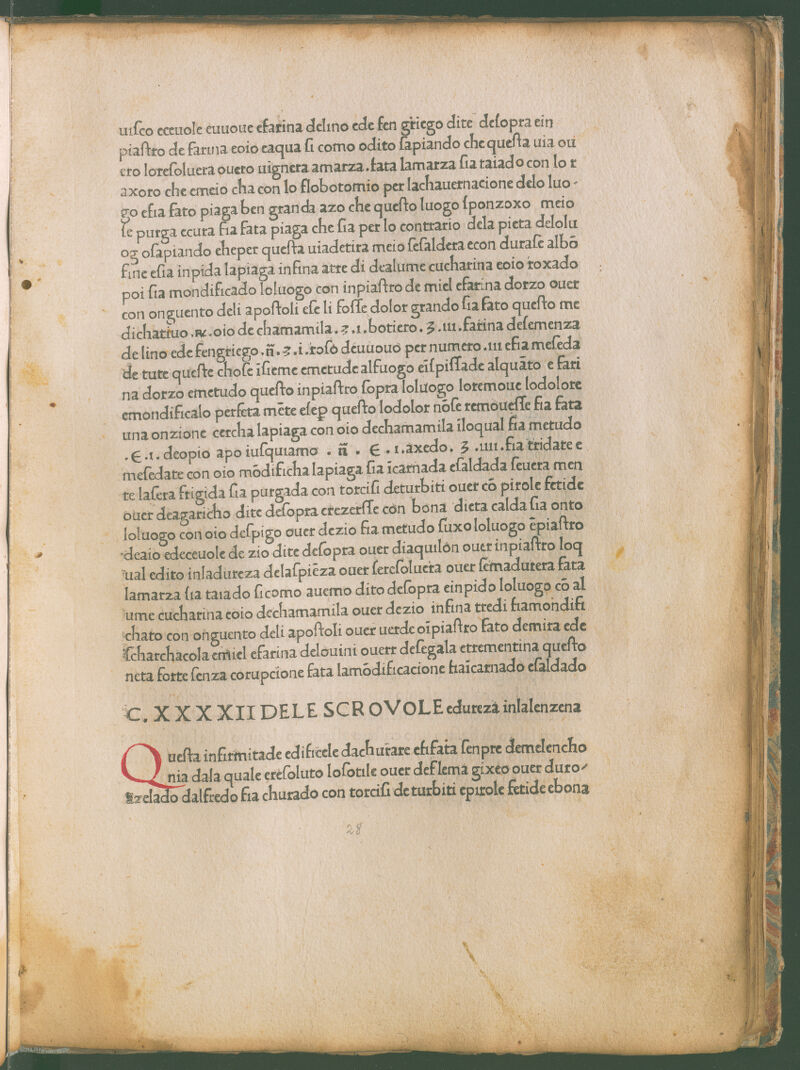 uiſco eceuole euuoue efarina delino ede fen griego dite deſopra ein
piaſtro de farina eoio eaqua ſi como odito ſapiando che queſta uia ou
ero loreſoluera ouero uignera amarza.fata lamarza ſia taiado con lo r
axoro che emeio cha con lo flobotomio per lachauernacione delo luo-
go eſia fato piaga ben granda azo che queſto luogo ſponzoxo meio
ſe purga ecura ſia fata piaga che ſia per lo contrario dela pieta delolu
og oſapiando cheper queſta uiadetira meio ſeſaldera econ duraſe albō
fine eſia inpida lapiaga infina atre di dealume cucharina eoio roxado
poi ſia mondificado loluogo con inpiaſtro de miel efarina dorzo ouer
con onguento deli apoſtoli eſe li foſſe dolor grando ſia fato queſto me
dichatiuo .℞.oio de chamamila.ʒ.ı.botiero.ʒ.ııı.farina deſemenza
de lino ede fengriego.ñ.ʒ.i.roſō deuuouo per numero.ııı eſia meſeda
de tute queſte choſe īſieme emetude alfuogo eīſpiſſade alquāto e fari
na dorzo emetudo queſto inpiaſtro ſopra loluogo loremoue lodolore
emondificalo perfeta mēte eſep queſto lodolor nōſe remoueſſe ſia fata
una onzione cercha lapiaga con oio dechamamila iloqual ſia metudo
.Є.ı. deopio apo iuſquiamo . ñ . Є . ı.axedo. ʒ .ıııı.ſia tridate e
meſedate con oio mōdificha lapiaga ſia īcarnada eſaldada ſeuera men
te laſera frigida ſia purgada con torciſi deturbiti ouer cō pirole fetide
ouer deagaricho dite deſopra erezerſſe con bona dieta calda ſia onto
loluogo con oio deſpigo ouer dezio ſia metudo ſuxo loluogo epiaſtro
deaio edeceuole de zio dite deſopra ouer diaquilōn ouer inpiaſtro loq
ual edito inladureza delaſpiēza ouer ſereſoluera ouer ſemadurera fata
lamarza ſia taiado ſicomo auemo dito deſopra einpido loluogo cō al
ume cucharina eoio dechamamila ouer dezio infina tredi ſiamondifi
chato con onguento deli apoſtoli ouer uerde oīpiaſtro fato demira ede
ſcharchacola emiel efarina delouini ouerr deſegala etrementina queſto
neta forte ſenza corupcione fata lamōdificacione ſiaīcarnado eſaldado
C. XXXXII DELE SCROVOLE edureza inlalenzena
Queſta infirmitade edificele dachurare eſifata ſenpre demelencho
nia dala quale ereſoluto loſotile ouer deflema gixeo ouer duro⸗
zelado dalfredo ſia churado con torciſi de turbiti epirole fetide ebona
28